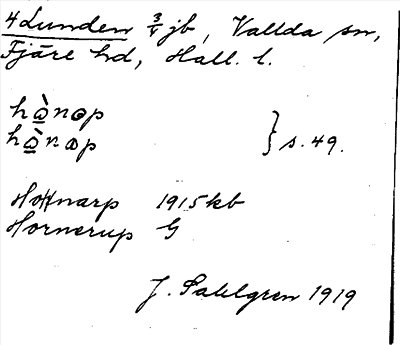 4 Lunden 3/4 jb, Vallda sn,
Fjäre hd, Hall. l.
hò̲nɵp
hò̲nap } s. 49.
Hottnarp 1915 kb
Hornerup G
J. Sahlgren 1919